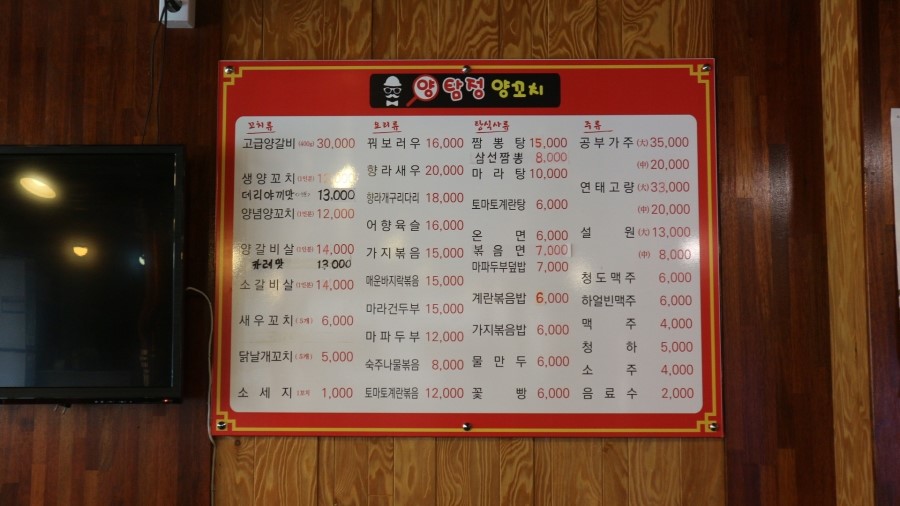 양탐정 양꼬치
꼬치류
고급양갈비 (400g) 30,000
생양꼬치 (1인분)
데리야끼맛 13.000
양념양꼬치 (1인분) 12,000
양갈비살 (1인분) 14,000
카레맛 13000
소갈비살 (1인분) 14,000
새우꼬치 6,000
닭날개꼬치 5,000
소세지 1,000
요리류
꿔보러우 16,000
향라새우 20,000
향라개구리다리 18,000
어향육슬 16,000
가지볶음 15,000
매운바지락볶음 15,000
마라건두부 15,000
마파두부 12,000
숙주나물볶음 8,000
토마토계란볶음 12,000
탕식사류
짬뽕탕 15,000
삼선짬뽕 8,000
마라탕 10,000
토마토계란탕 6,000
온면 6,000
볶음면 7,000
마파두부덮밥 7,000
계란볶음밥 6,000
가지볶음밥 6,000
물만두 6,000
꽃빵 6,000
주류
공부가주 (大) 35,000
(中) 20,000
연태고량 (大) 33,000
(中) 20,000
설원 (大) 13,000
(中) 8,000
청도맥주 6,000
하얼빈맥주 6,000
맥주 4,000
청하 5,000
소주 4,000
음료수 2,000